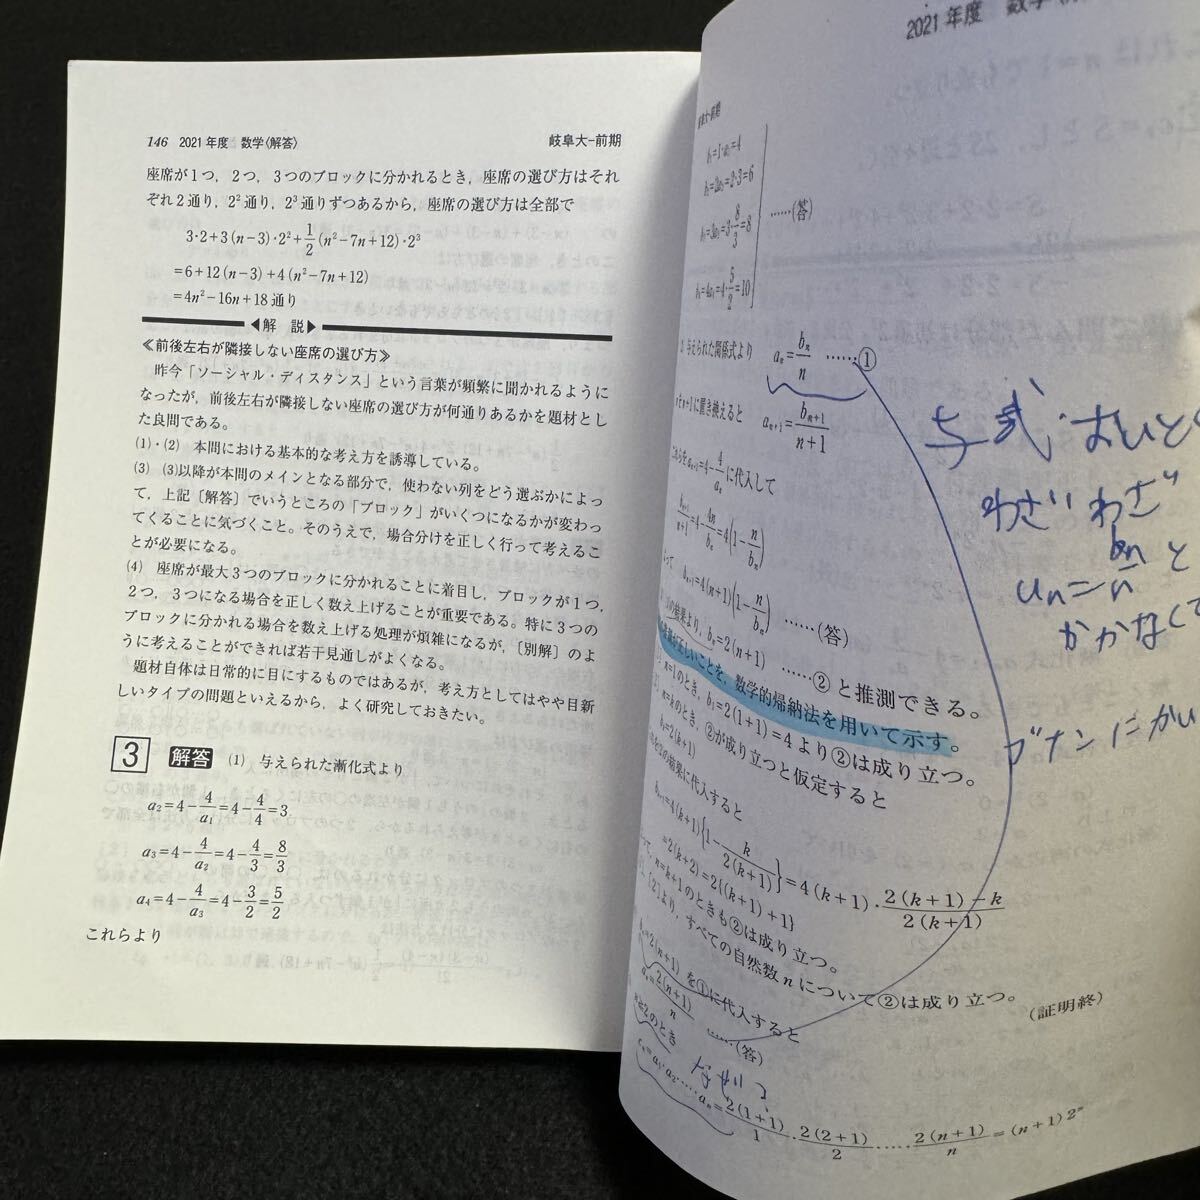 146 2021年度 数学〈解答〉 岐阜大-前期
座席が1つ，2つ，3つのブロックに分かれるとき，座席の選び方はそれ
ぞれ2通り，2²通り，2³通りずつあるから，座席の選び方は全部で
3·2+3(n−3)·2²+1/2(n²−7n+12)·2³
=6+12(n−3)+4(n²−7n+12)
=4n²−16n+18通り
◀解 説▶
≪前後左右が隣接しない座席の選び方≫
昨今「ソーシャル・ディスタンス」という言葉が頻繁に聞かれるように
なったが，前後左右が隣接しない座席の選び方が何通りあるかを題材とし
た良問である。
(1)・(2) 本問における基本的な考え方を誘導している。
(3) (3)以降が本問のメインとなる部分で，使わない列をどう選ぶかによっ
て，上記〔解答〕でいうところの「ブロック」がいくつになるかが変わっ
てくることに気づくこと。そのうえで，場合分けを正しく行って考えるこ
とが必要になる。
(4) 座席が最大3つのブロックに分かれることに着目し，ブロックが1つ，
2つ，3つになる場合を正しく数え上げることが重要である。特に3つの
ブロックに分かれる場合を数え上げる処理が煩雑になるが，〔別解〕のよ
うに考えることができれば若干見通しがよくなる。
題材自体は日常的に目にするものではあるが，考え方としてはやや目新
しいタイプの問題といえるから，よく研究しておきたい。
3 解答 (1) 与えられた漸化式より
a₂=4−4/a₁=4−4/4=3
a₃=4−4/a₂=4−4/3=8/3
a₄=4−4/a₃=4−3/2=5/2
これらより
2021年度 数学
b₁=1·a₁=4
b₂=2a₂=2·3=6
b₃=3a₃=3·8/3=8
b₄=4a₄=4·5/2=10
……(答)
与えられた関係式より aₙ=bₙ/n ……①
n+1に置き換えると aₙ₊₁=bₙ₊₁/(n+1)
これらをaₙ₊₁=4−4/aₙに代入して
bₙ₊₁/(n+1)=4−4n/bₙ=4(1−n/bₙ)
bₙ₊₁=4(n+1)(1−n/bₙ) ……(答)
の結果より，bₙ=2(n+1) ……②と推測できる。
が正しいことを，数学的帰納法を用いて示す。
n=1のとき，b₁=2(1+1)=4より②は成り立つ。
n=kのとき，②が成り立つと仮定すると
bₖ=2(k+1)
の結果に代入すると
bₖ₊₁=4(k+1){1−k/2(k+1)}=4(k+1)·(2(k+1)−k)/2(k+1)
=2(k+2)=2{(k+1)+1}
n=k+1のときも②は成り立つ。
〔2〕より，すべての自然数nについて②は成り立つ。
(証明終)
bₙ=2(n+1)を①に代入すると
aₙ=2(n+1)/n ……(答)
n≧2のとき
cₙ=a₁·a₂·……aₙ=2(1+1)/1·2(2+1)/2·……2(n+1)/n=(n+1)2ⁿ
与式
わざわざ
bn/n と
かかなくて
ブナンにかい
なぜ？